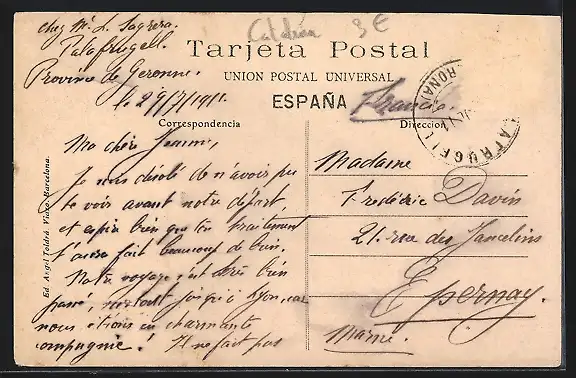 chez Mr. L. Sagrera
Palafrugell.
Province de Geronne.
le 29/7/1911.
Catalán 3€
Tarjeta Postal
UNION POSTAL UNIVERSAL
ESPAÑA
Francia.
Correspondencia
Dirección
Ma chère Jeanne,
Je suis désolé de n'avoir pu
te voir avant notre départ,
et espère bien que ton traitement
t'aura fait beaucoup de bien.
Notre voyage s'est très bien
passé, surtout jusqu'à Lyon, car
nous étions en charmante
compagnie! Il ne fait pas
Madame
Frédéric Davin
21. rue des Jancelins
Epernay.
Marne.
Ed. Angel Toldrá Viazo-Barcelona.